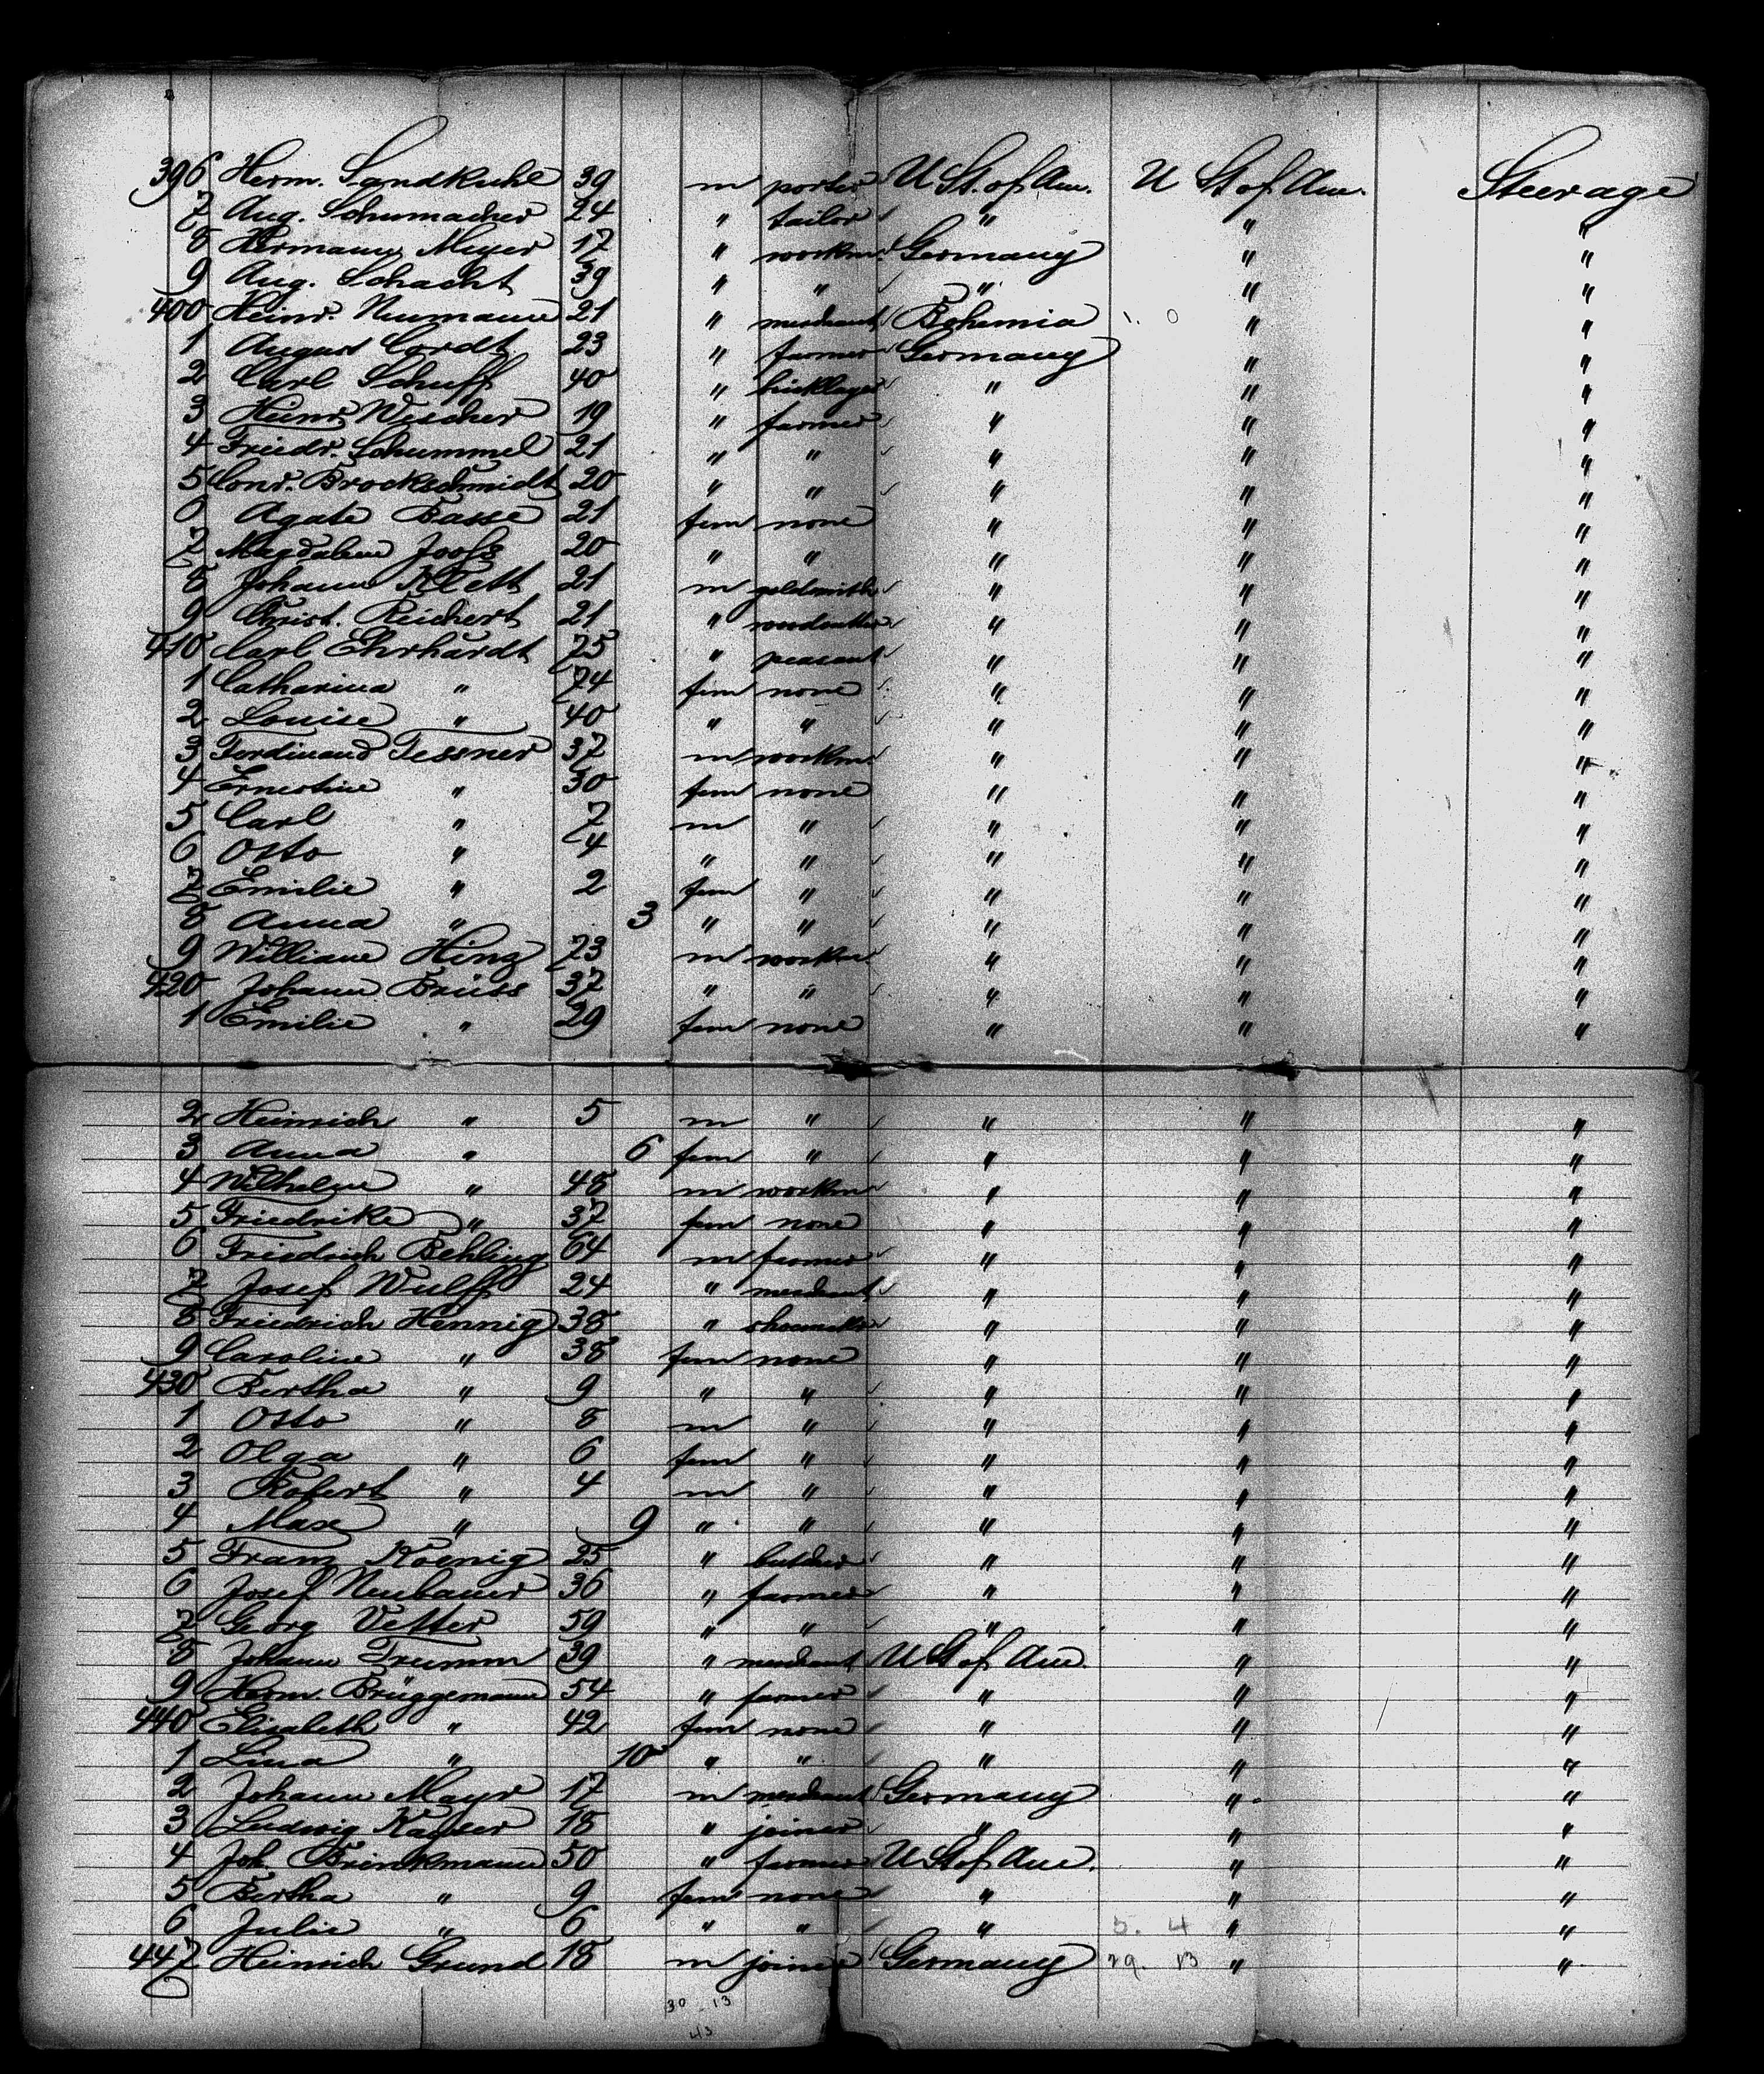 396 Herm. Sandkuhl 39 m porter U St. of Am. U St of Am. Steerage
7 Aug. Schumacher 24 " tailor " " "
8 Hermann Meyer 17 " workm. Germany " "
9 Aug. Schacht 39 " " " " "
400 Heinr. Neumann 21 " merchant Bohemia 1. 0 " "
1 August Cordt 23 " farmer Germany " "
2 Carl Schuff 40 " bricklayer " " "
3 Heinr. Wischer 19 " farmer " " "
4 Friedr. Schummel 21 " " " " "
5 Conr. Brockschmidt 20 " " " " "
6 Agate Basse 21 fem none " " "
7 Magdalene Joofs 20 " " " " "
8 Johann Klett 21 m goldsmith " " "
9 Christ. Reichert 21 " woodcutter " " "
410 Carl Ehrhardt 75 " peasant " " "
1 Catharina " 74 fem none " " "
2 Louise " 40 " " " " "
3 Ferdinand Tessner 37 m workm. " " "
4 Ernestine " 30 fem none " " "
5 Carl " 7 m " " " "
6 Otto " 4 " " " " "
7 Emilie " 2 fem " " " "
8 Anna " 3 " " " " "
9 William Hinz 23 m workm " " "
420 Johann Brüss 37 " " " " "
1 Emilie " 29 fem none " " "
2 Heinrich " 5 m " " " "
3 Anna " 6 fem " " " "
4 Wilhelm " 48 m workm " " "
5 Friedrike " 37 fem none " " "
6 Friedrich Behling 64 m farmer " " "
7 Josef Wulff 24 " merchant " " "
8 Friedrich Hennig 38 " shoemaker " " "
9 Caroline " 38 fem none " " "
430 Bertha " 9 " " " " "
1 Otto " 8 m " " " "
2 Olga " 6 fem " " " "
3 Robert " 4 m " " " "
4 Max " 9 " " " " "
5 Franz Koenig 25 " butcher " " "
6 Josef Neubauer 36 " farmer " " "
7 Georg Vetter 59 " " " " "
8 Johann Trumm 39 " merchant U St of Am. " "
9 Herm. Brüggemann 54 " farmer " " "
440 Elisabeth " 42 fem none " " "
1 Lina " 10 " " " " "
2 Johann Mayr 17 m merchant Germany " "
3 Ludwig Kayser 18 " joiner " " "
4 Joh. Brinkmann 50 " farmer U St of Am. " "
5 Bertha " 9 fem none " " "
6 Julie " 6 " " " 5. 4 " "
447 Heinrich Grund 18 m joiner Germany 29. 13 " "
30 . 13
43